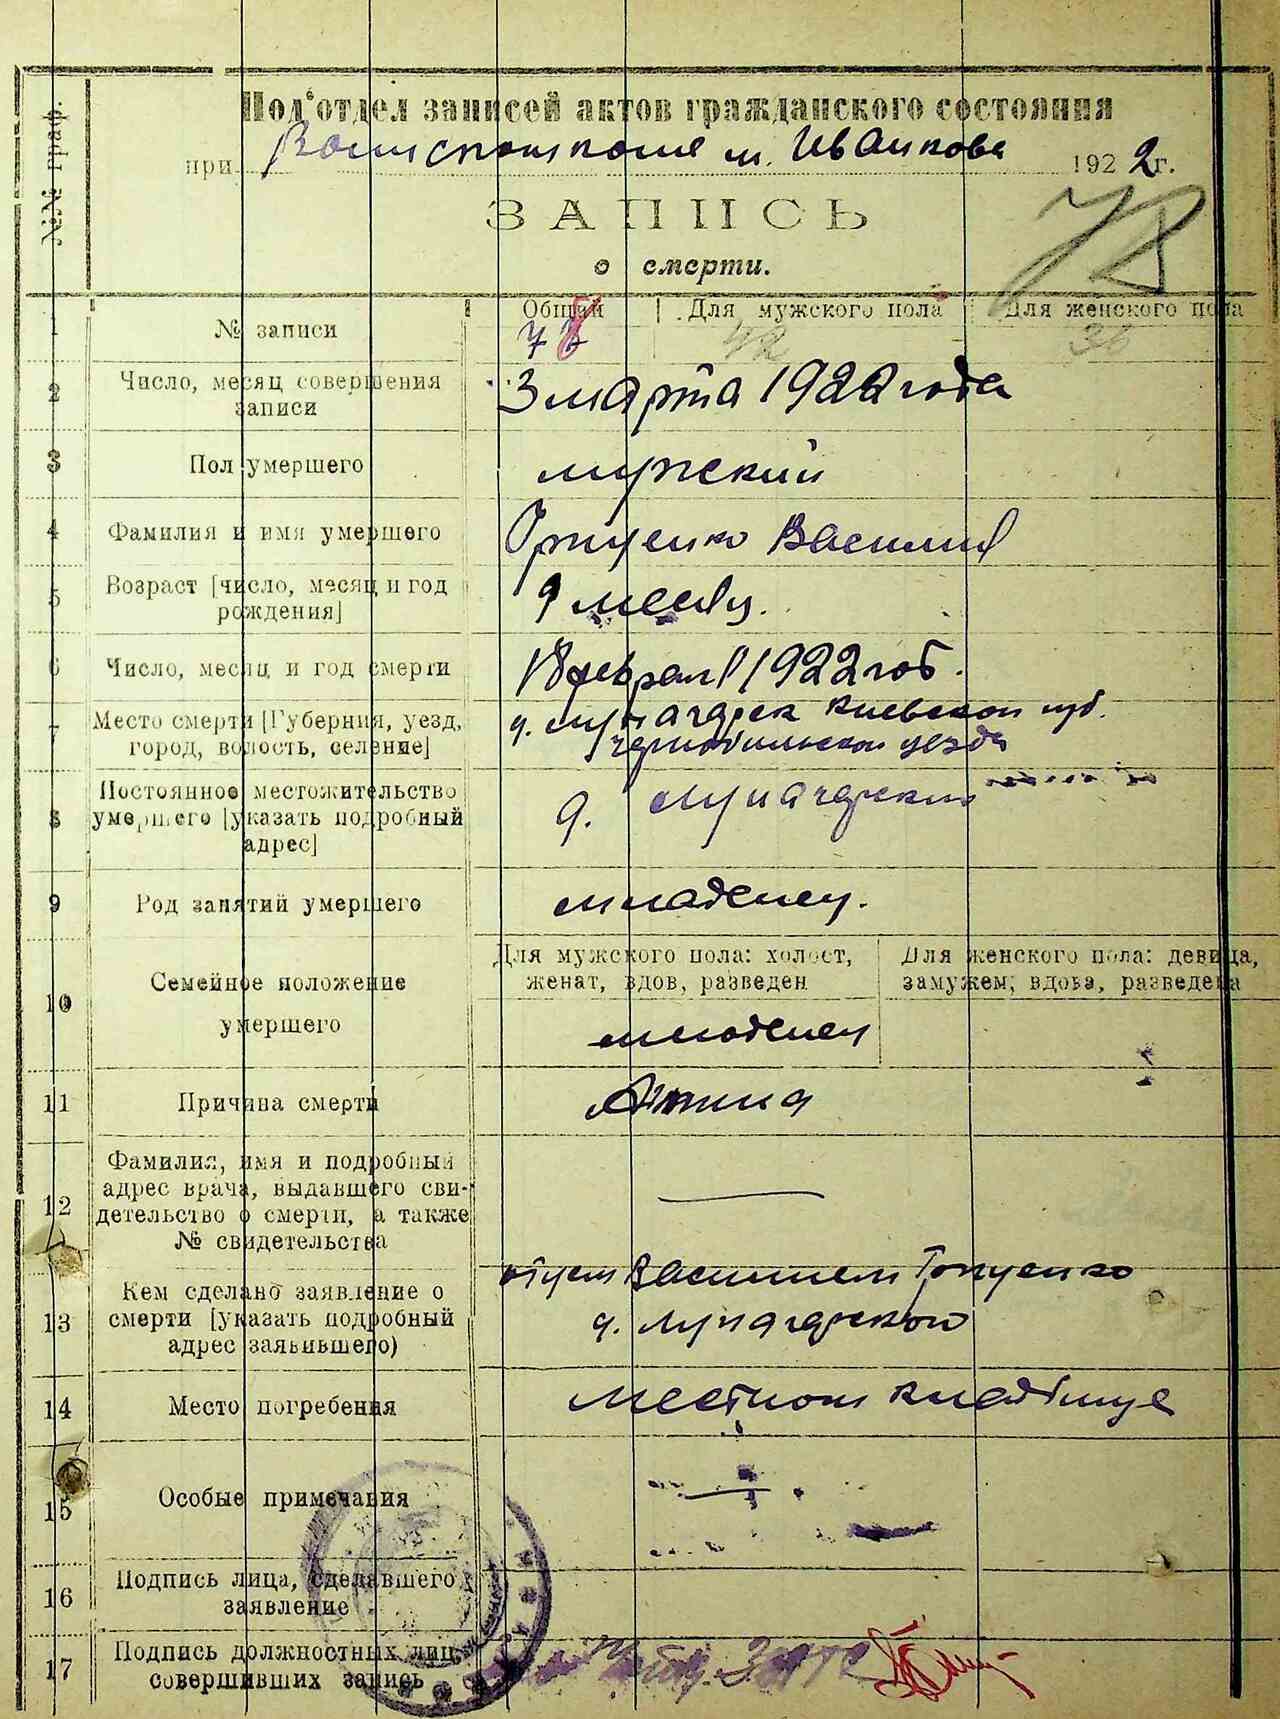 №№ граф.
Под'отдел записей актов гражданского состояния
при м. Иванкове 1922 г.
78
ЗАПИСЬ
о смерти.
Общий | Для мужского пола | Для женского пола
1 № записи 42 36
2 Число, месяц совершения
записи
3 марта 1922 года
3 Пол умершего мужский
4 Фамилия и имя умершего Грищенко Василий
5 Возраст [число, месяц и год
рождения]
9 месяц.
6 Число, месяц и год смерти 18 феврал 1922 год.
7 Место смерти [Губерния, уезд,
город, волость, селение]
д. Киевской губ.
уезда
8 Постоянное местожительство
умершего [указать подробный
адрес]
д.
9 Род занятий умершего младенец.
10 Семейное положение
умершего
Для мужского пола: холост,
женат, вдов, разведен
Для женского пола: девица,
замужем, вдова, разведена
младенец
11 Причина смерти
12 Фамилия, имя и подробный
адрес врача, выдавшего сви-
детельство о смерти, а также
№ свидетельства
—
13 Кем сделано заявление о
смерти [указать подробный
адрес заявившего)
отцем Василием Грищенко
д.
14 Место погребения местном кладбище
15 Особые примечания
—
16 Подпись лица, сделавшего
заявление
17 Подпись должностных лиц,
совершивших запись